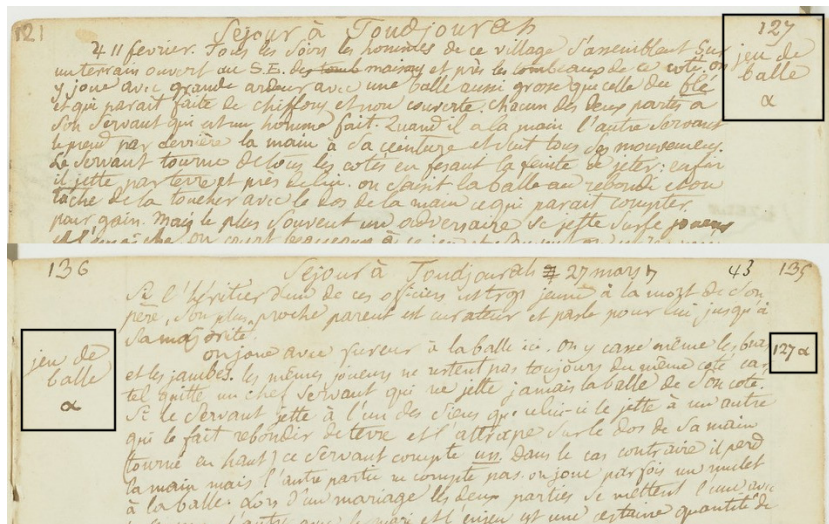 121 Séjour à Toudjourah 127
4 11 fevrier. Tous les soirs les hommes de ce village s'assemblent sur
un terrain ouvert au S.E. des tomb maisons et près les tombeaux de ce coté. on
y joue avec grande ardeur avec une balle aussi grosse que celle du blé
et qui parait faite de chiffons et non couverte. Chacun des deux partis a
son servant qui est un homme fait. Quand il a la main l'autre servant
le prend par derrière la main à sa ceinture et suit tous ses mouvemens.
Le servant tourne de tous les cotés en fesant la feinte de jeter: enfin
il jette par terre et près de lui. on saisit la balle au rebond et on
tache de la toucher avec le dos de la main ce qui parait compter
pour gain. mais le plus souvent un adversaire se jette sur le joueur
et l'empêche on court beaucoup à ce jeu
jeu de
balle
α
136 Séjour à Toudjourah 27 mars 43 135
Si l'héritier d'un de ces officiers est trop jeune à la mort de son
père, son plus proche parent est curateur et parle pour lui jusqu'à
sa majorité.
on joue avec fureur à la balle ici. on y casse même les bras
et les jambes. les mêmes joueurs ne restent pas toujours du même coté car
tel quitte un chef servant qui ne jette jamais la balle de son coté.
Si le servant jette à l'un des siens que celui-ci le jette à un autre
qui le fait rebondir de terre et l'attrape sur le dos de sa main
(tourné en haut) ce servant compte un. Dans le cas contraire il perd
la main mais l'autre partie ne compte pas. on joue parfois un mulet
à la balle. Lors d'un mariage les deux parties se mettent l'une avec
l'autre avec le mari et l'enjeu est une certaine quantité de
jeu de
balle
α
127 α